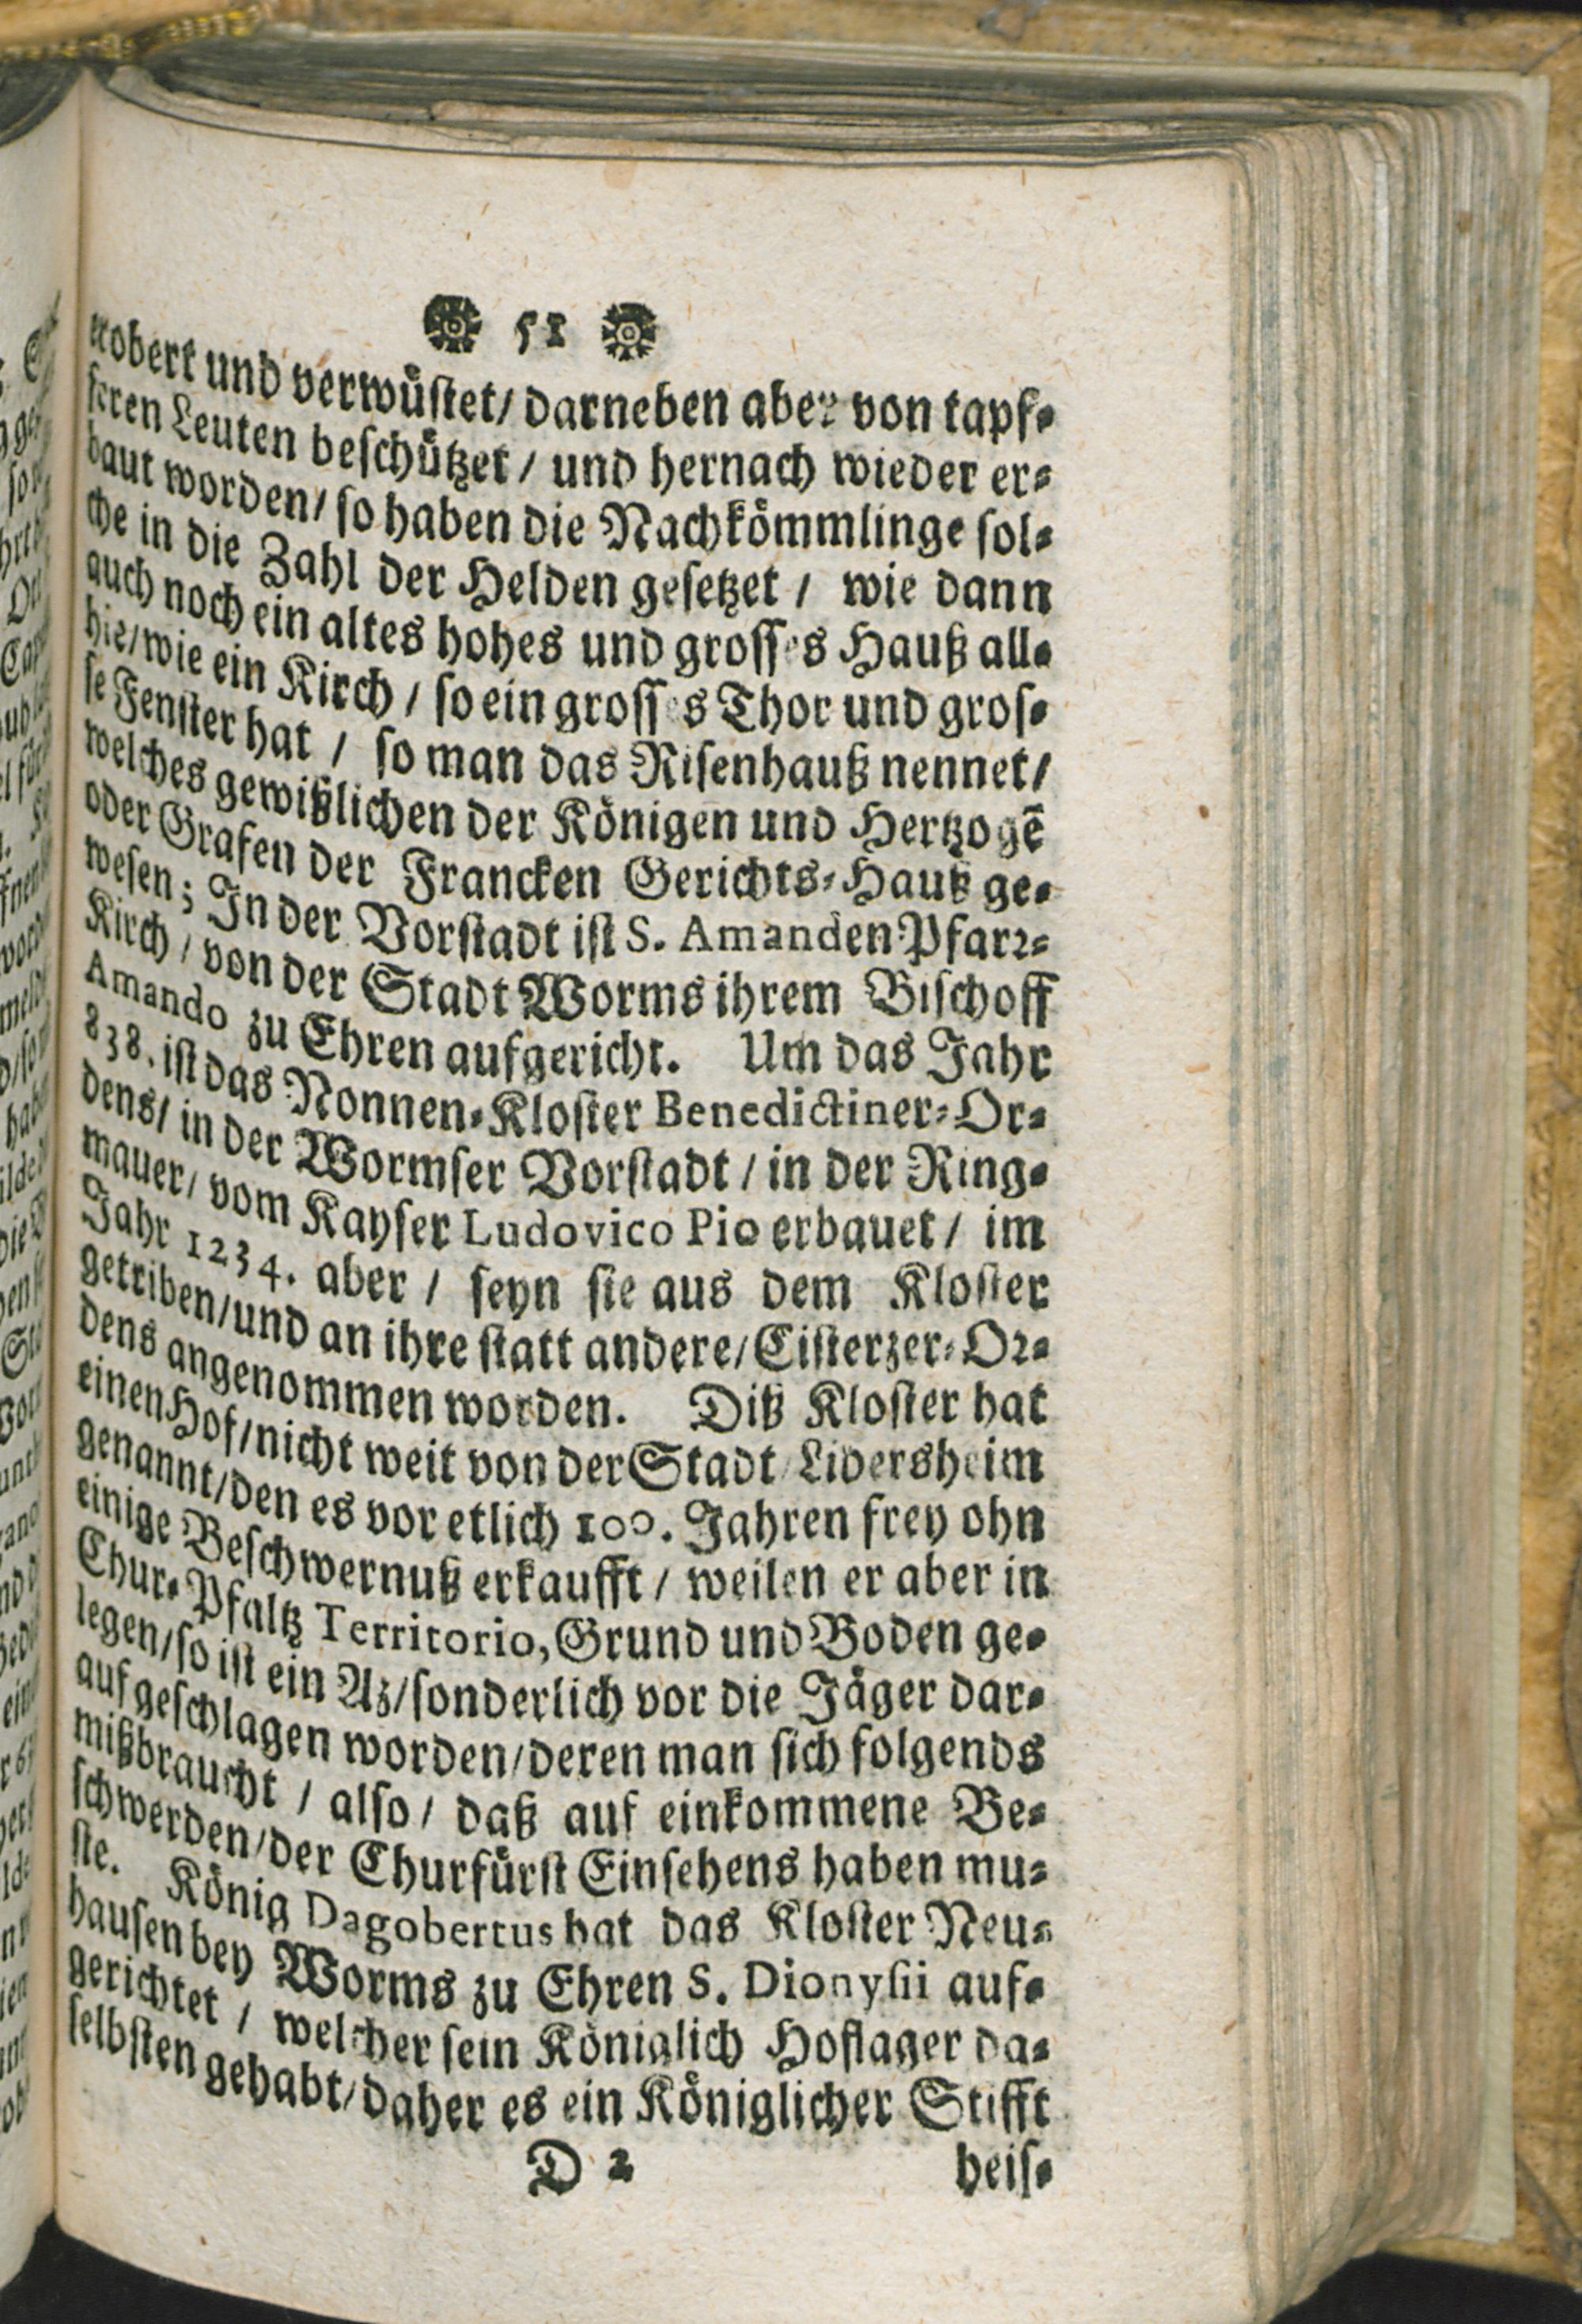 51
erobert und verwüstet/ darneben aber von tapf-
feren Leuten beschützet / und hernach wieder er-
baut worden/ so haben die Nachkömmlinge sol-
che in die Zahl der Helden gesetzet / wie dann
auch noch ein altes hohes und grosses Hauß all-
hie/ wie ein Kirch / so ein grosses Thor und gros-
se Fenster hat / so man das Risenhauß nennet/
welches gewißlichen der Königen und Hertzogē
oder Grafen der Francken Gerichts-Hauß ge-
wesen; In der Vorstadt ist S. Amanden Pfarr-
Kirch / von der Stadt Worms ihrem Bischoff
Amando zu Ehren aufgericht. Um das Jahr
838. ist das Nonnen-Kloster Benedictiner-Or-
dens/ in der Wormser Vorstadt / in der Ring-
mauer/ vom Kayser Ludovico Pio erbauet / im
Jahr 1234. aber / seyn sie aus dem Kloster
getriben/ und an ihre statt andere/ Cisterzer-Or-
dens angenommen worden. Diß Kloster hat
einen Hof/ nicht weit von der Stadt/ Lidersheim
genannt/ den es vor etlich 100. Jahren frey ohn
einige Beschwernuß erkaufft / weilen er aber in
Chur-Pfaltz Territorio, Grund und Boden ge-
legen/ so ist ein Az/ sonderlich vor die Jäger dar-
auf geschlagen worden/ deren man sich folgends
mißbraucht / also / daß auf einkommene Be-
schwerden/ der Churfürst Einsehens haben mu-
ste. König Dagobertus hat das Kloster Neu-
hausen bey Worms zu Ehren S. Dionysii auf-
gerichtet / welcher sein Königlich Hoflager da-
selbsten gehabt/ daher es ein Königlicher Stifft
D 2 heis-